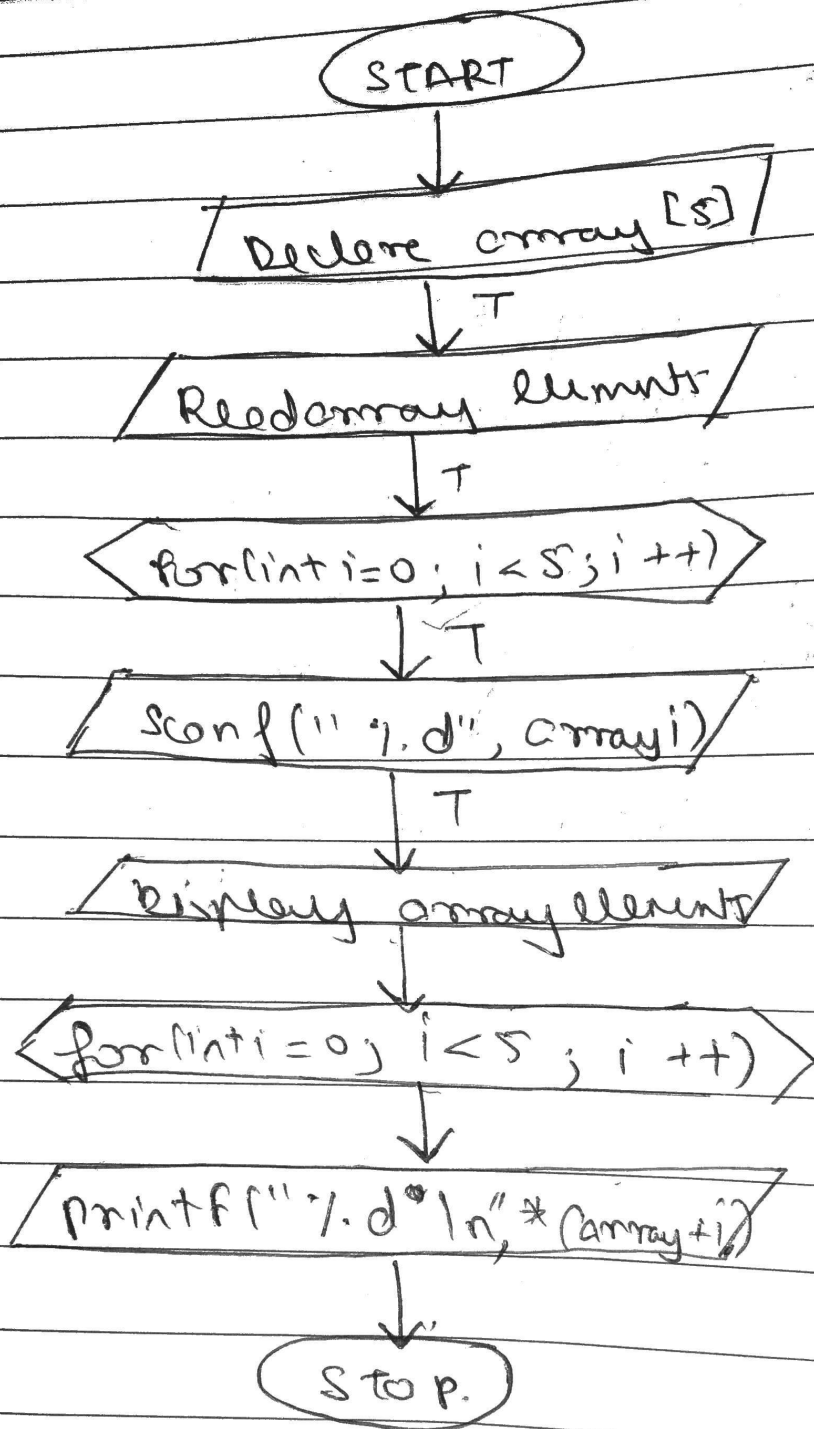 START
Declare array [5]
T
Read array elements
T
for(int i=0; i<5; i++)
T
Scanf("%d", array i)
T
Display array elements
for(int i=0; i<5; i++)
printf("%d\n", *(array+i))
Stop.